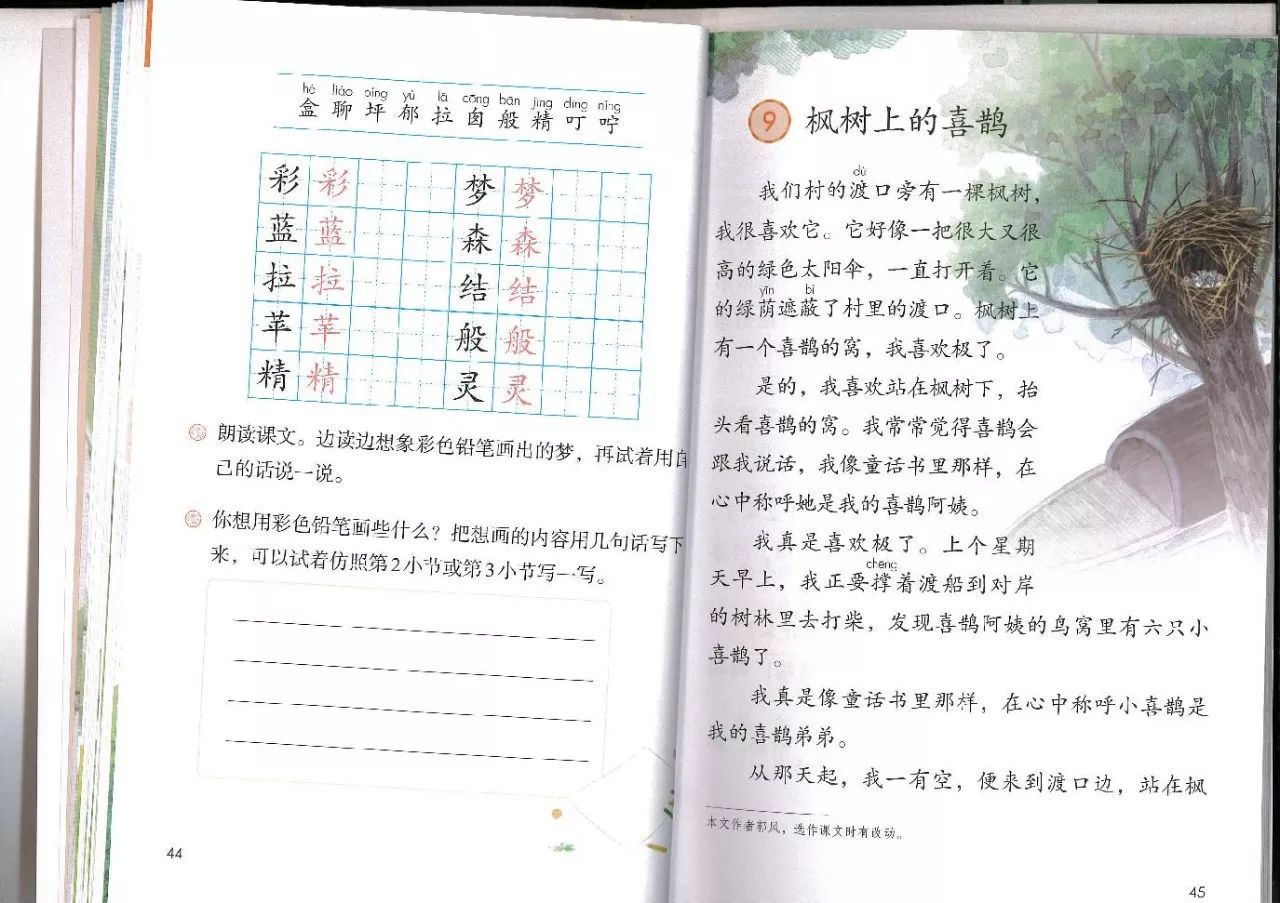 hé liáo píng yù lā cōng bān jīng dīng níng
盒 聊 坪 郁 拉 囱 般 精 叮 咛
彩 彩 梦 梦
蓝 蓝 森 森
拉 拉 结 结
苹 苹 般 般
精 精 灵 灵
朗读课文。边读边想象彩色铅笔画出的梦，再试着用自
己的话说一说。
你想用彩色铅笔画些什么？把想画的内容用几句话写下
来，可以试着仿照第2小节或第3小节写一写。
44
9 枫树上的喜鹊
dù
我们村的渡口旁有一棵枫树，
我很喜欢它。它好像一把很大又很
高的绿色太阳伞，一直打开着。它
yīn bì
的绿荫遮蔽了村里的渡口。枫树上
有一个喜鹊的窝，我喜欢极了。
是的，我喜欢站在枫树下，抬
头看喜鹊的窝。我常常觉得喜鹊会
跟我说话，我像童话书里那样，在
心中称呼她是我的喜鹊阿姨。
我真是喜欢极了。上个星期
chēng
天早上，我正要撑着渡船到对岸
的树林里去打柴，发现喜鹊阿姨的鸟窝里有六只小
喜鹊了。
我真是像童话书里那样，在心中称呼小喜鹊是
我的喜鹊弟弟。
从那天起，我一有空，便来到渡口边，站在枫
本文作者郭风，选作课文时有改动。
45